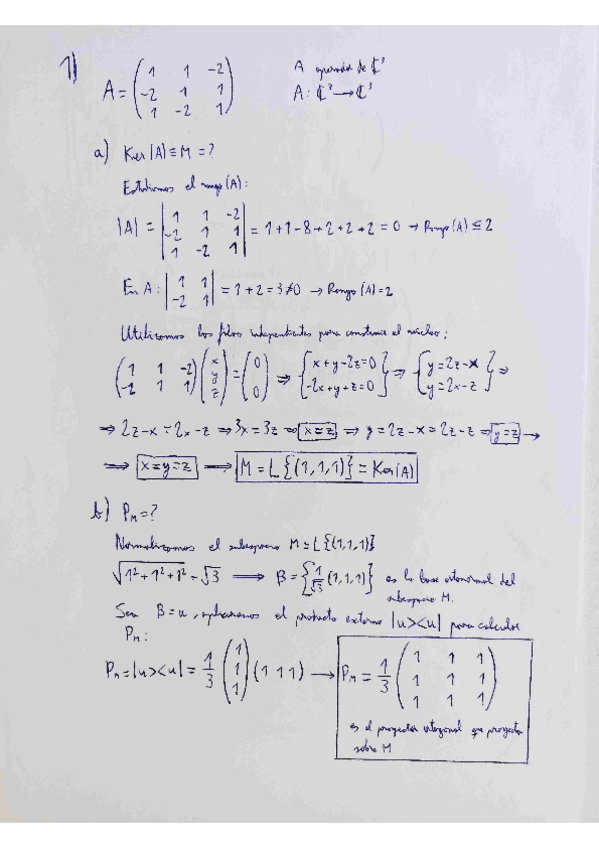 1)
A = ( 1 1 -2 / -2 1 1 / 1 -2 1 )
A operador de ℂ³
A: ℂ³ → ℂ³
a) Ker(A) ≡ M = ?
Estudiamos el rango(A):
|A| = | 1 1 -2 / -2 1 1 / 1 -2 1 | = 1+1-8+2+2+2 = 0 → Rango(A) ≤ 2
En A: | 1 1 / -2 1 | = 1+2 = 3 ≠ 0 → Rango(A) = 2
Utilizamos las filas independientes para construir el núcleo:
( 1 1 -2 / -2 1 1 ) ( x / y / z ) = ( 0 / 0 ) ⇒ { x+y-2z=0 / -2x+y+z=0 } ⇒ { y=2z-x / y=2x-z } ⇒
⇒ 2z-x = 2x-z ⇒ 3x = 3z ⇒ x=z ⇒ y = 2z-x = 2z-z ⇒ y=z →
⇒ x=y=z → M = L{(1,1,1)} = Ker(A)
b) P_M = ?
Normalizamos el subespacio M = L{(1,1,1)}
√(1²+1²+1²) = √3 ⇒ B = { 1/√3 (1,1,1) } es la base ortonormal del
subespacio M.
Sea B = u, aplicaremos el producto externo |u><u| para calcular
P_M:
P_M = |u><u| = 1/3 ( 1 / 1 / 1 ) (1 1 1) → P_M = 1/3 ( 1 1 1 / 1 1 1 / 1 1 1 )
es el proyector ortogonal que proyecta
sobre M